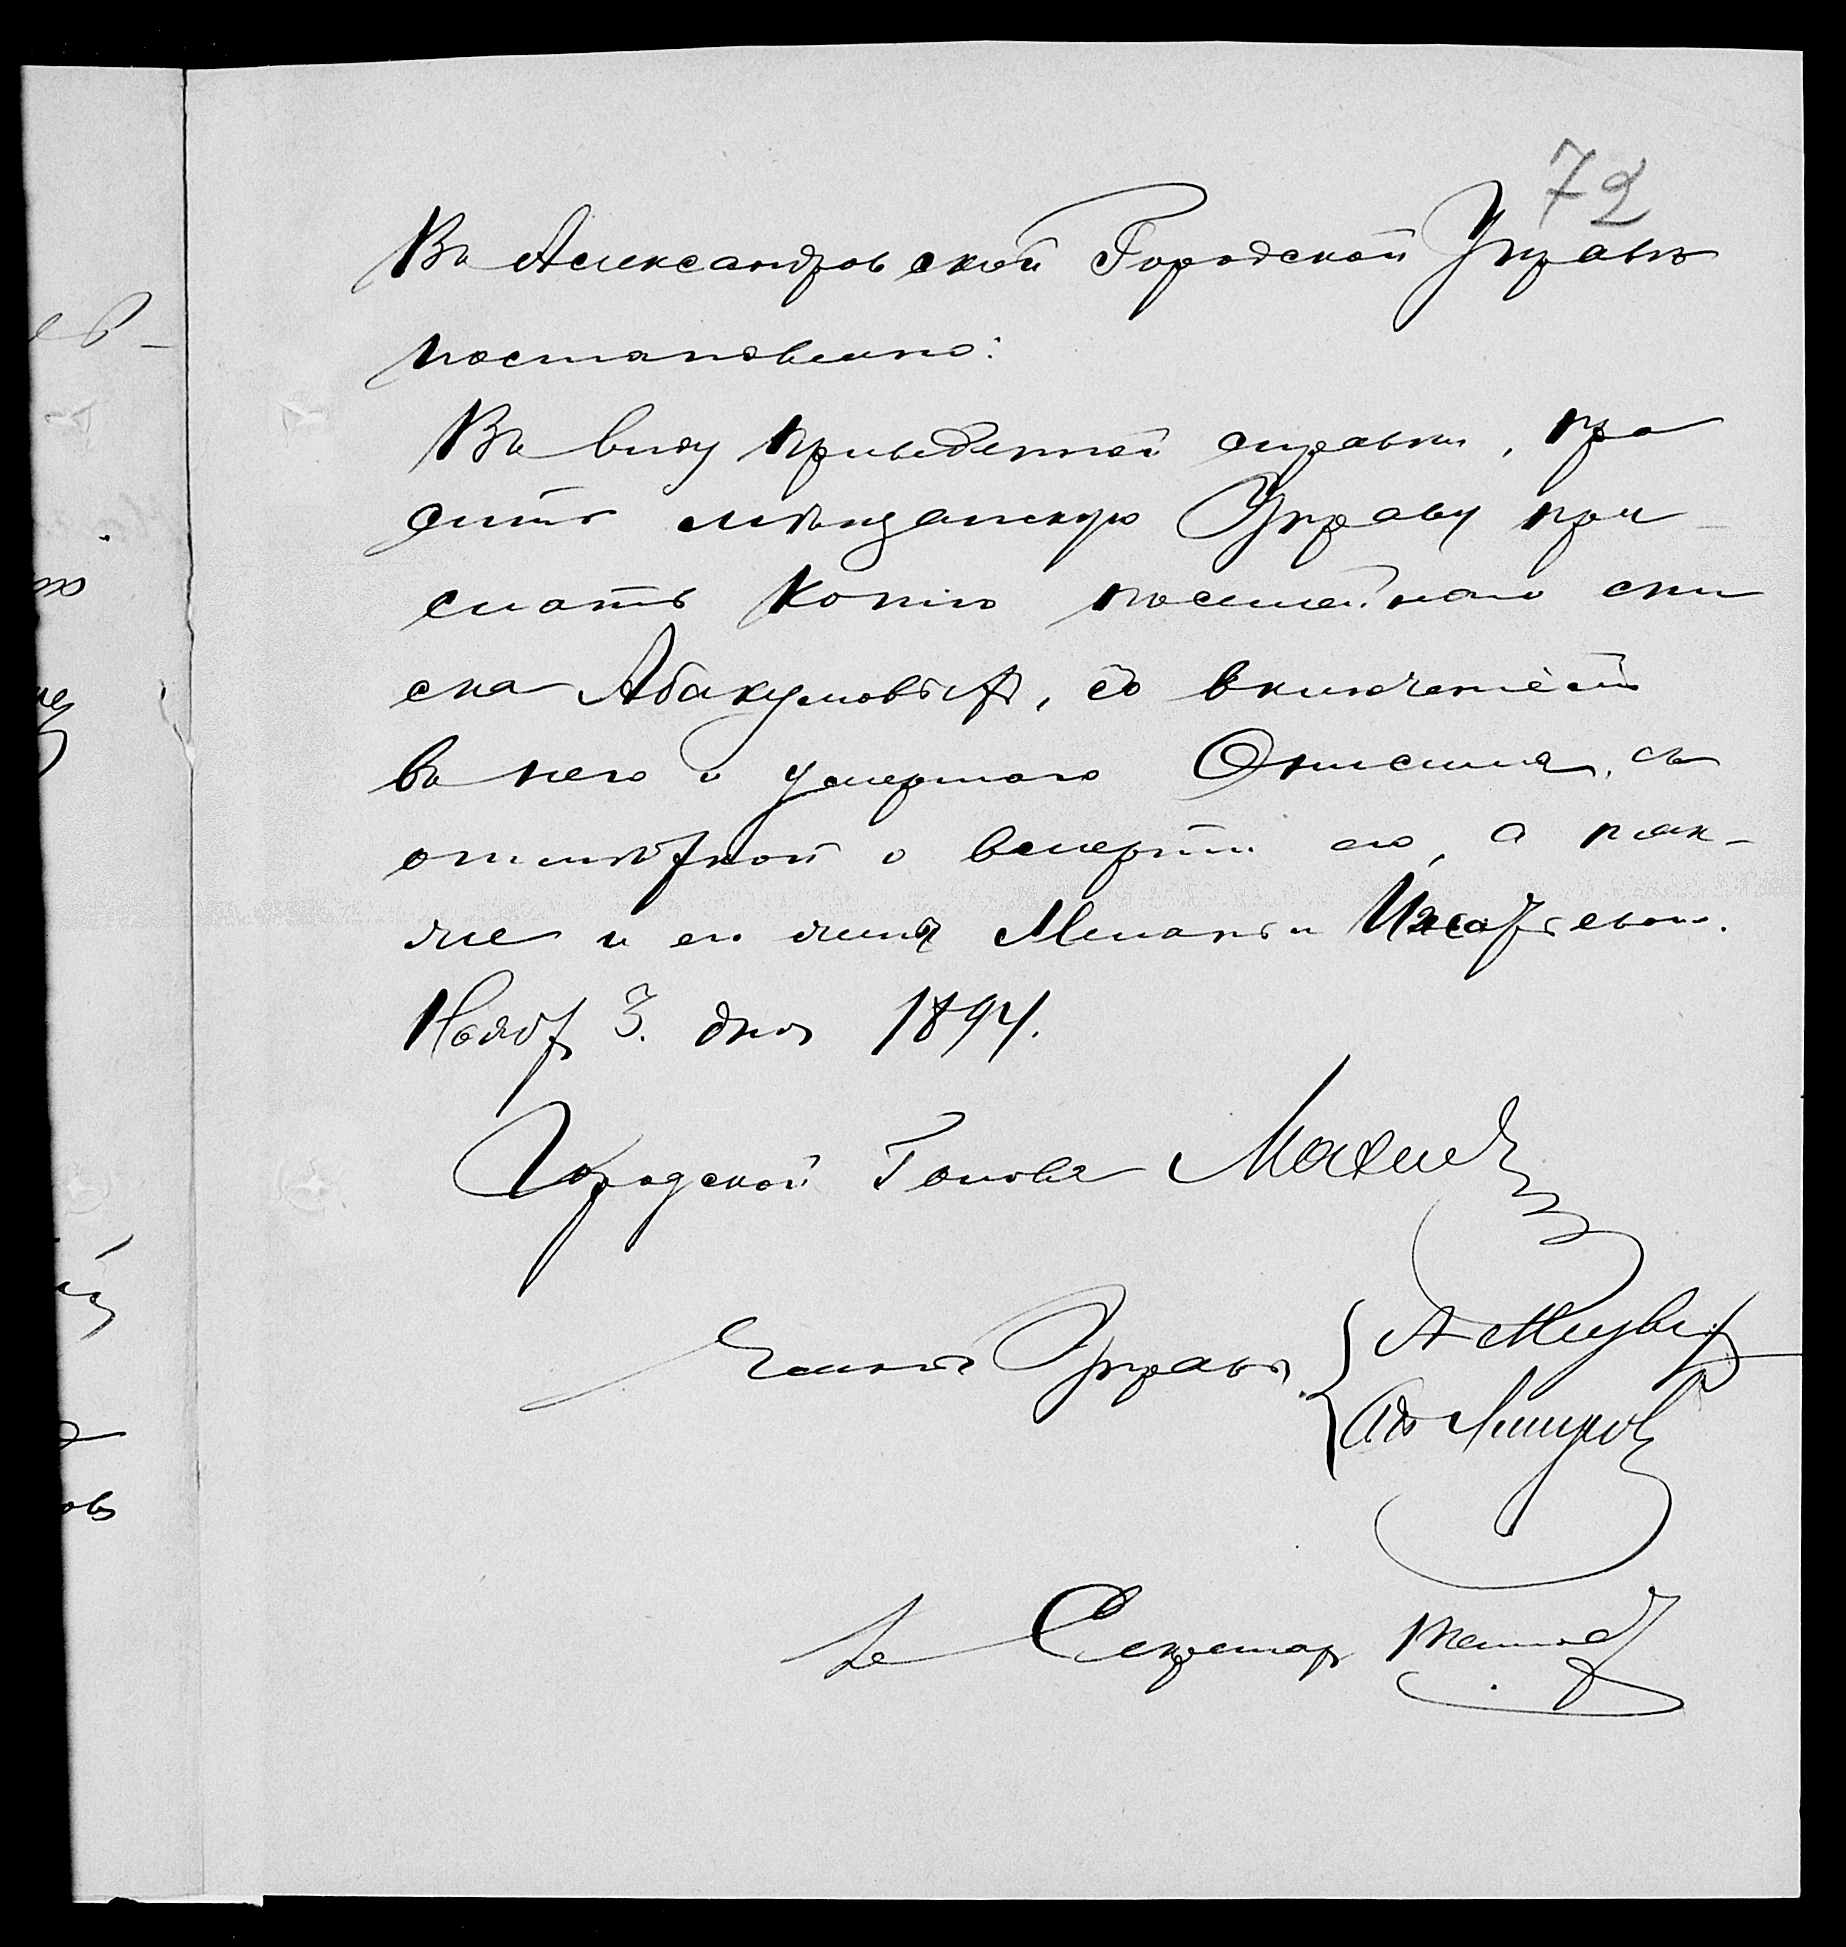 72
Въ Александровской Городской Управѣ
постановлено:
Въ виду приведенной справки, про
сить мѣщанскую Управу при-
слать копію посемейнаго спи
ска Абакумовыхъ, со включеніемъ
въ него и умершаго Онисима, съ
отмѣткой о смерти его, а так-
же и его жены Меланьи
Нояб 3. дня 1894.
Городской Голова
Члены Управы
А
Секретарь